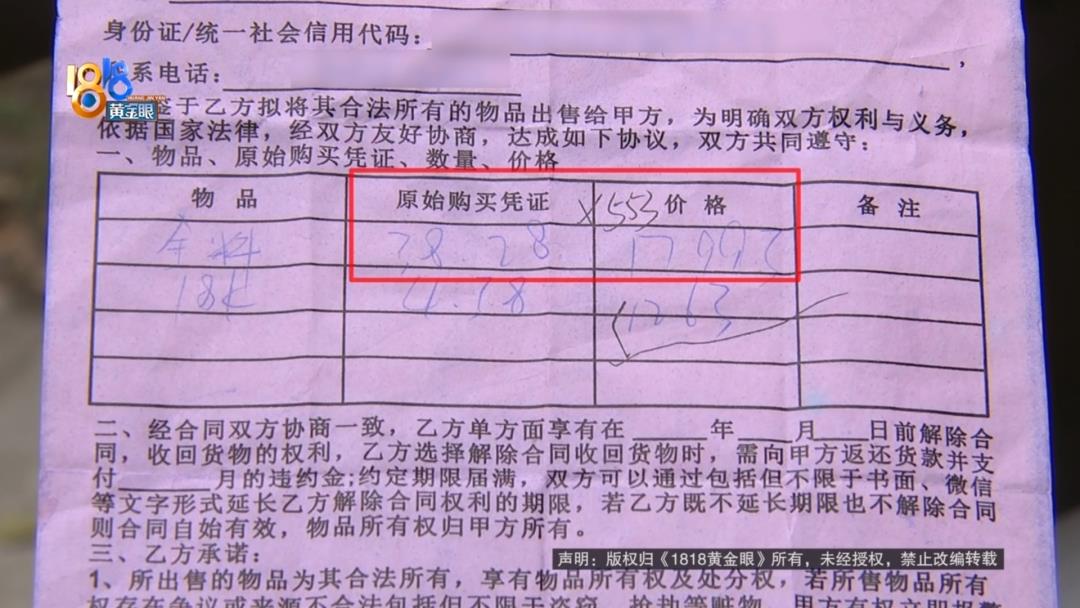 身份证/统一社会信用代码：
1818
黄金眼
系电话：
鉴于乙方拟将其合法所有的物品出售给甲方，为明确双方权利与义务，
依据国家法律，经双方友好协商，达成如下协议，双方共同遵守：
一、物品、原始购买凭证、数量、价格
物 品 原始购买凭证 X553 价 格 备 注
38.28 17992
18K 4.58 1263
二、经合同双方协商一致，乙方单方面享有在____年____月____日前解除合
同，收回货物的权利，乙方选择解除合同收回货物时，需向甲方返还货款并支
付______月的违约金;约定期限届满，双方可以通过包括但不限于书面、微信
等文字形式延长乙方解除合同权利的期限，若乙方既不延长期限也不解除合同
则合同自始有效，物品所有权归甲方所有。
三、乙方承诺：
声明：版权归《1818黄金眼》所有，未经授权，禁止改编转载
1、所出售的物品为其合法所有，享有物品所有权及处分权，若所售物品所有
权存在争议或来源不合法包括但不限于盗窃、抢劫等赃物，甲方有权